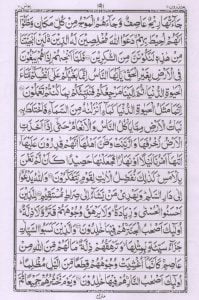 جَآءَتْهَا رِيْحٌ عَاصِفٌ وَّجَآءَهُمُ الْمَوْجُ مِنْ كُلِّ مَكَانٍ وَّظَنُّوْٓا
اَنَّهُمْ اُحِيْطَ بِهِمْ دَعَوُا اللّٰهَ مُخْلِصِيْنَ لَهُ الدِّيْنَ لَئِنْ اَنْجَيْتَنَا
مِنْ هٰذِهٖ لَنَكُوْنَنَّ مِنَ الشّٰكِرِيْنَ فَلَمَّآ اَنْجٰىهُمْ اِذَا هُمْ يَبْغُوْنَ
فِى الْاَرْضِ بِغَيْرِ الْحَقِّ يٰٓاَيُّهَا النَّاسُ اِنَّمَا بَغْيُكُمْ عَلٰٓى اَنْفُسِكُمْ مَّتَاعَ
الْحَيٰوةِ الدُّنْيَا ثُمَّ اِلَيْنَا مَرْجِعُكُمْ فَنُنَبِّئُكُمْ بِمَا كُنْتُمْ تَعْمَلُوْنَ
اِنَّمَا مَثَلُ الْحَيٰوةِ الدُّنْيَا كَمَآءٍ اَنْزَلْنٰهُ مِنَ السَّمَآءِ فَاخْتَلَطَ بِهٖ
نَبَاتُ الْاَرْضِ مِمَّا يَاْكُلُ النَّاسُ وَالْاَنْعَامُ حَتّٰٓى اِذَآ اَخَذَتِ
الْاَرْضُ زُخْرُفَهَا وَازَّيَّنَتْ وَظَنَّ اَهْلُهَآ اَنَّهُمْ قٰدِرُوْنَ عَلَيْهَآ
اَتٰىهَآ اَمْرُنَا لَيْلًا اَوْ نَهَارًا فَجَعَلْنٰهَا حَصِيْدًا كَاَنْ لَّمْ تَغْنَ
بِالْاَمْسِ كَذٰلِكَ نُفَصِّلُ الْاٰيٰتِ لِقَوْمٍ يَّتَفَكَّرُوْنَ وَاللّٰهُ يَدْعُوْٓا
اِلٰى دَارِ السَّلٰمِ وَيَهْدِيْ مَنْ يَّشَآءُ اِلٰى صِرَاطٍ مُّسْتَقِيْمٍ لِلَّذِيْنَ
اَحْسَنُوا الْحُسْنٰى وَزِيَادَةٌ وَلَا يَرْهَقُ وُجُوْهَهُمْ قَتَرٌ وَّلَا ذِلَّةٌ
اُولٰٓئِكَ اَصْحٰبُ الْجَنَّةِ هُمْ فِيْهَا خٰلِدُوْنَ وَالَّذِيْنَ كَسَبُوا السَّيِّاٰتِ
جَزَآءُ سَيِّئَةٍ بِمِثْلِهَا وَتَرْهَقُهُمْ ذِلَّةٌ مَا لَهُمْ مِّنَ اللّٰهِ مِنْ
عَاصِمٍ كَاَنَّمَآ اُغْشِيَتْ وُجُوْهُهُمْ قِطَعًا مِّنَ الَّيْلِ مُظْلِمًا
اُولٰٓئِكَ اَصْحٰبُ النَّارِ هُمْ فِيْهَا خٰلِدُوْنَ وَيَوْمَ نَحْشُرُهُمْ جَمِيْعًا